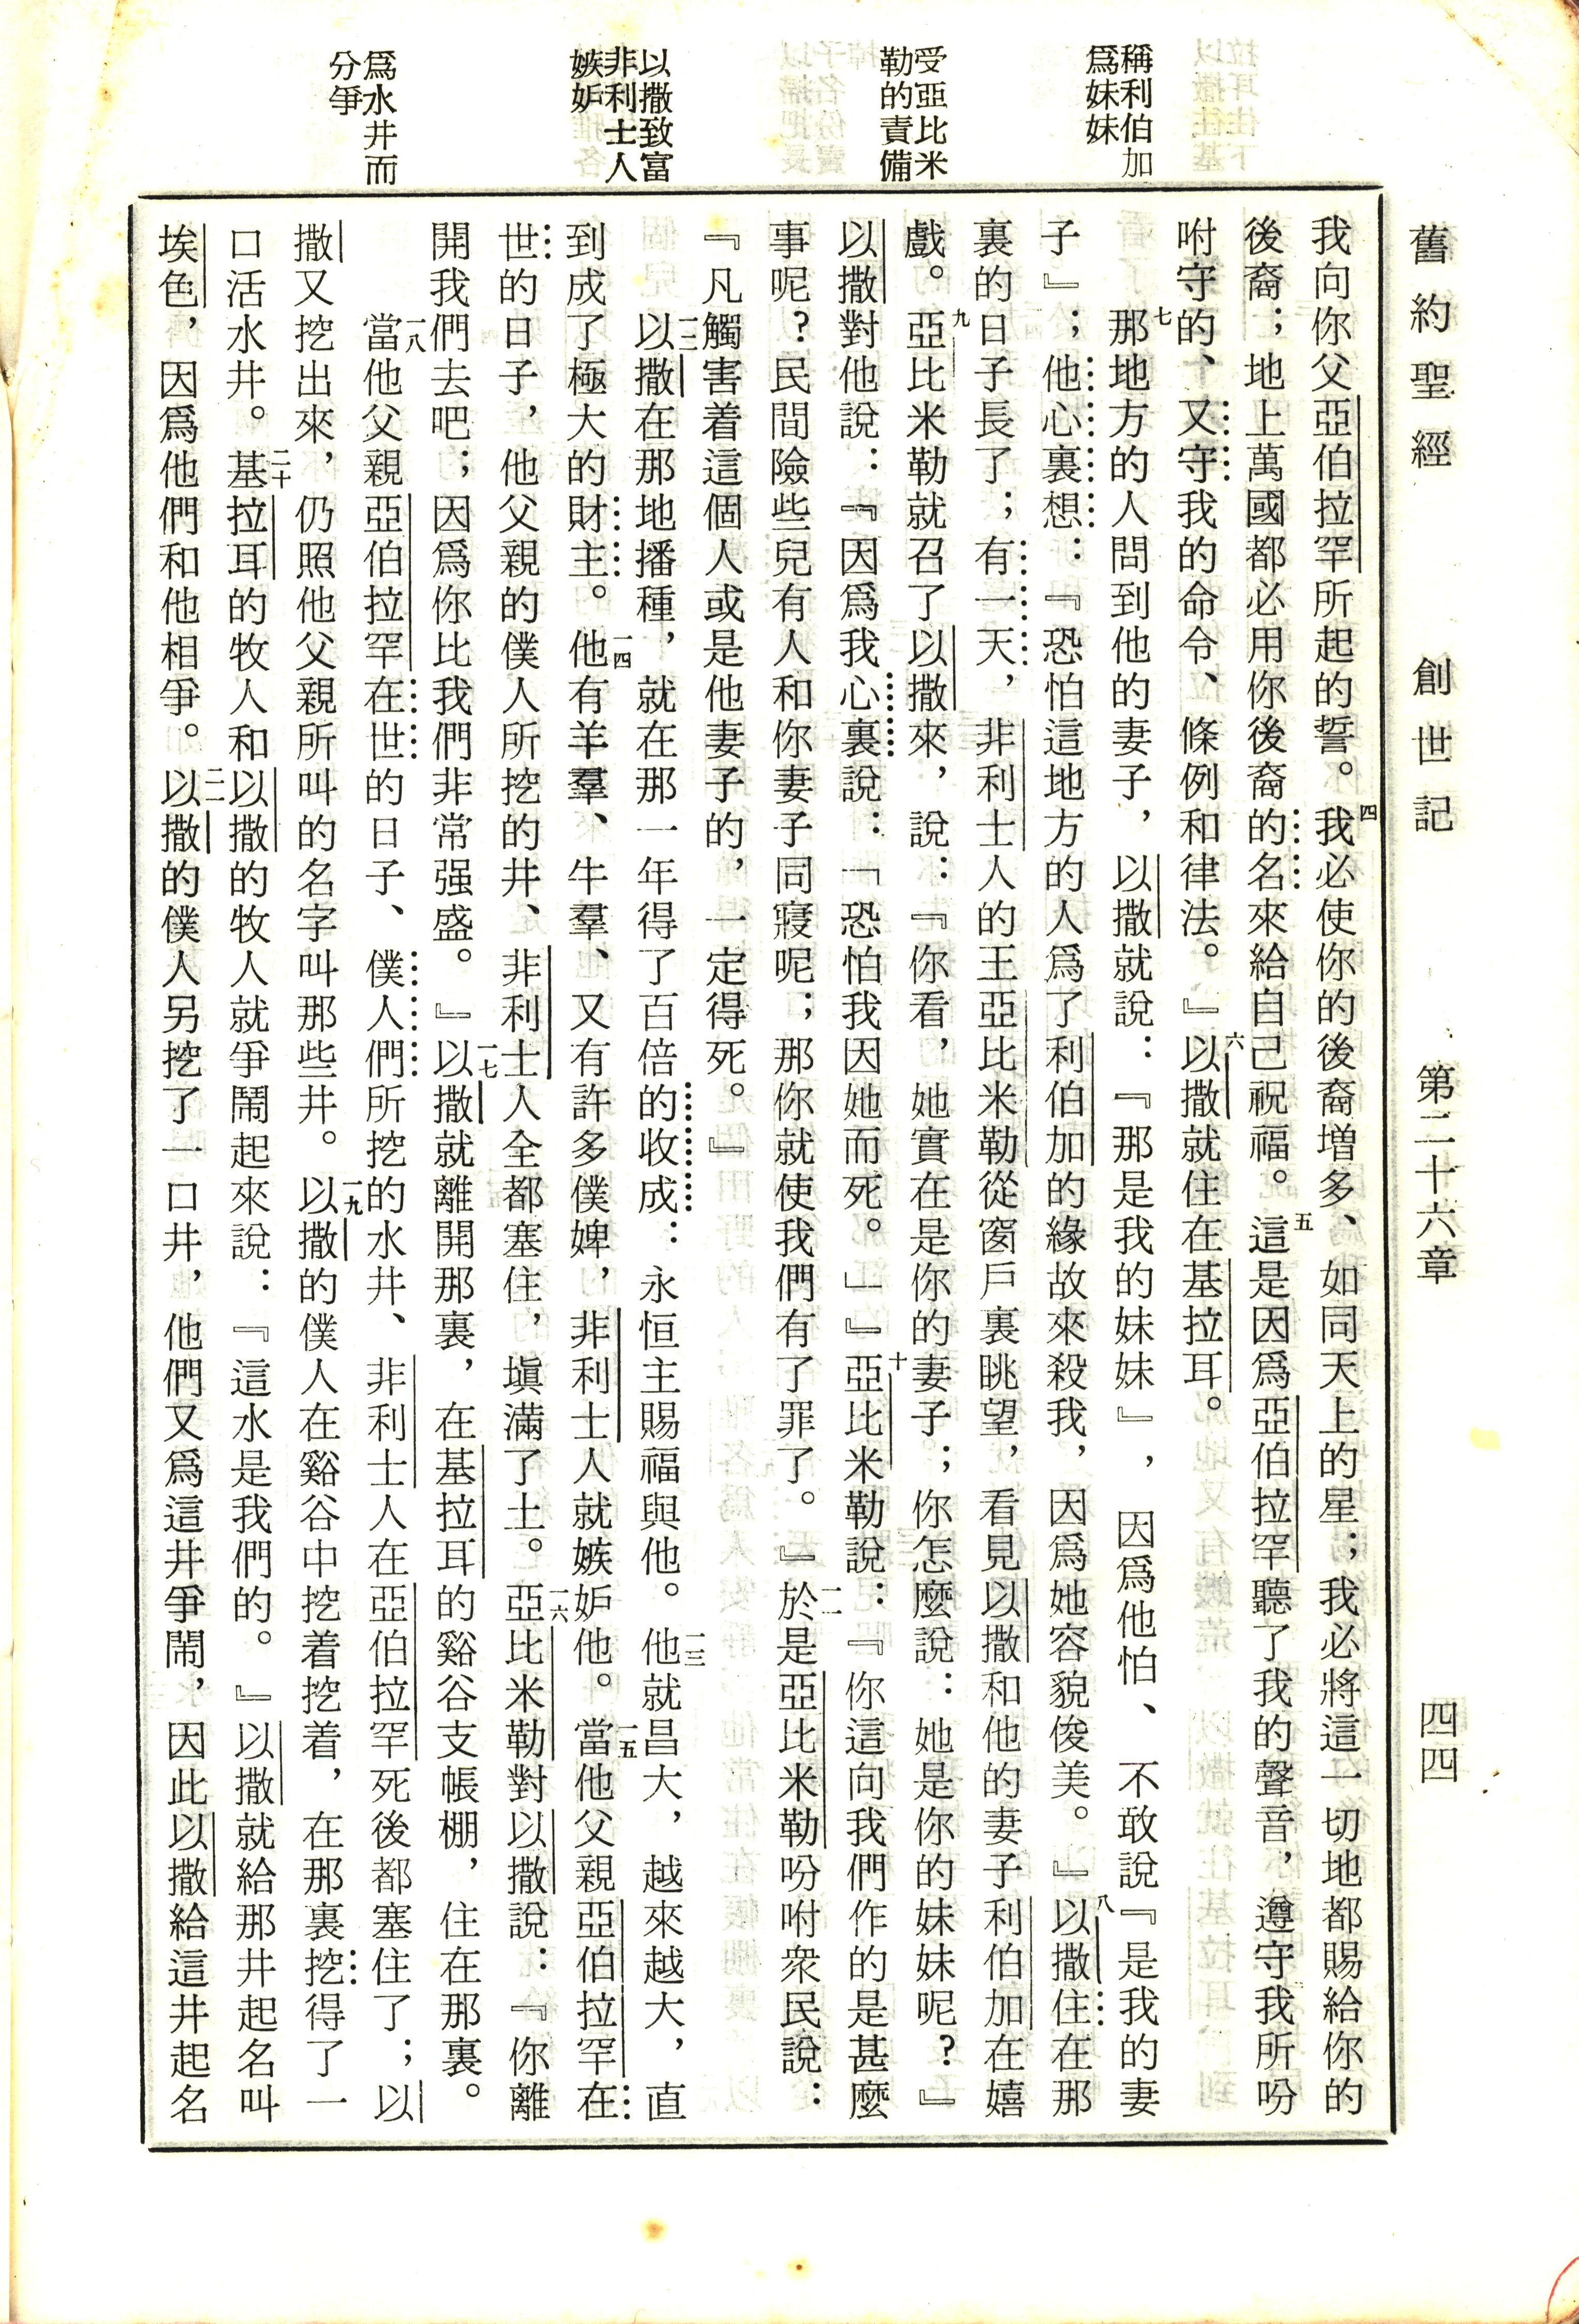 舊約聖經　創世記　第二十六章　四四
稱利伯加
爲妹妹
受亞比米
勒的責備
以撒致富
非利士人
嫉妒
爲水井而
分爭
我向你父亞伯拉罕所起的誓。四我必使你的後裔增多、如同天上的星；我必將這一切地都賜給你的
後裔；地上萬國都必用你後裔的名來給自己祝福。五這是因爲亞伯拉罕聽了我的聲音，遵守我所吩
咐守的、又守我的命令、條例和律法。』六以撒就住在基拉耳。
七那地方的人問到他的妻子，以撒就說：『那是我的妹妹』，因爲他怕、不敢說『是我的妻
子』；他心裏想：『恐怕這地方的人爲了利伯加的緣故來殺我，因爲她容貌俊美。』八以撒住在那
裏的日子長了；有一天，非利士人的王亞比米勒從窗戶裏眺望，看見以撒和他的妻子利伯加在嬉
戲。九亞比米勒就召了以撒來，說：『你看，她實在是你的妻子；你怎麼說：她是你的妹妹呢？』
以撒對他說：『因爲我心裏說：「恐怕我因她而死。」』十亞比米勒說：『你這向我們作的是甚麼
事呢？民間險些兒有人和你妻子同寢呢；那你就使我們有了罪了。』一一於是亞比米勒吩咐衆民說：
『凡觸害着這個人或是他妻子的，一定得死。』
一二以撒在那地播種，就在那一年得了百倍的收成：永恒主賜福與他。一三他就昌大，越來越大，直
到成了極大的財主。一四他有羊羣、牛羣、又有許多僕婢，非利士人就嫉妒他。一五當他父親亞伯拉罕在
世的日子，他父親的僕人所挖的井、非利士人全都塞住，塡滿了土。一六亞比米勒對以撒說：『你離
開我們去吧；因爲你比我們非常强盛。』一七以撒就離開那裏，在基拉耳的谿谷支帳棚，住在那裏。
一八當他父親亞伯拉罕在世的日子、僕人們所挖的水井、非利士人在亞伯拉罕死後都塞住了；以
撒又挖出來，仍照他父親所叫的名字叫那些井。一九以撒的僕人在谿谷中挖着挖着，在那裏挖得了一
口活水井。二十基拉耳的牧人和以撒的牧人就爭鬧起來說：『這水是我們的。』以撒就給那井起名叫
埃色，因爲他們和他相爭。二一以撒的僕人另挖了一口井，他們又爲這井爭鬧，因此以撒給這井起名